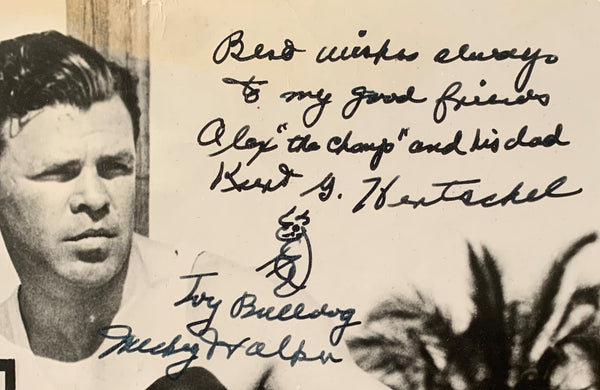 Best wishes always
to my good friends
Alex "the champ" and his dad
Kurt G. Hentschel
Toy Bulldog
Mickey Walker